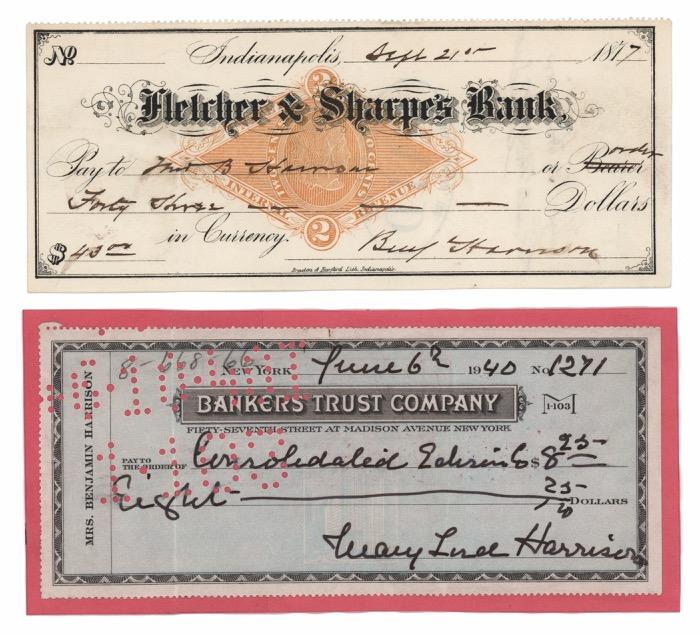 No Indianapolis, Sept 21st 1877
Fletcher & Sharpe's Bank,
Pay to B Harrison or Bearer order
Forty Three Dollars
$ 43 00 in Currency. Benj Harrison
2
TWO CENTS
INTERNAL REVENUE
2
Braden & Burford Lith. Indianapolis.
8-668 66
NEW YORK June 6th 1940 No. 1271
BANKERS TRUST COMPANY
1-103
FIFTY-SEVENTH STREET AT MADISON AVENUE NEW YORK
PAY TO THE ORDER OF Consolidated Edison Co $ 8 25
Eight 25 DOLLARS
Mary Lord Harrison
MRS. BENJAMIN HARRISON